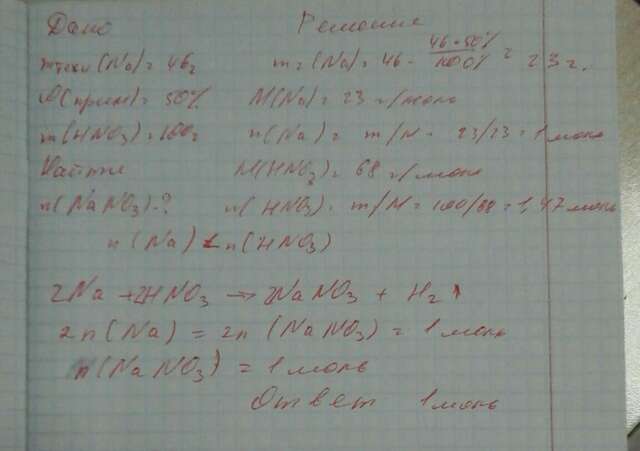 Дано Решение
mтехн(Na) = 46г m = (Na) = 46 - 46 * 50% / 100% = 23 г.
(прим) = 50% M(Na) = 23 г/моль
m(HNO3) = 100г n(Na) = m/M = 23/23 = 1 моль
Найти M(HNO3) = 68 г/моль
n(NaNO3) - ? n(HNO3) = m/M = 100/68 = 1,47 моль
n(Na) < n(HNO3)
2Na + 2HNO3 → 2NaNO3 + H2↑
2n(Na) = 2n(NaNO3) = 1 моль
n(NaNO3) = 1 моль
Ответ 1 моль